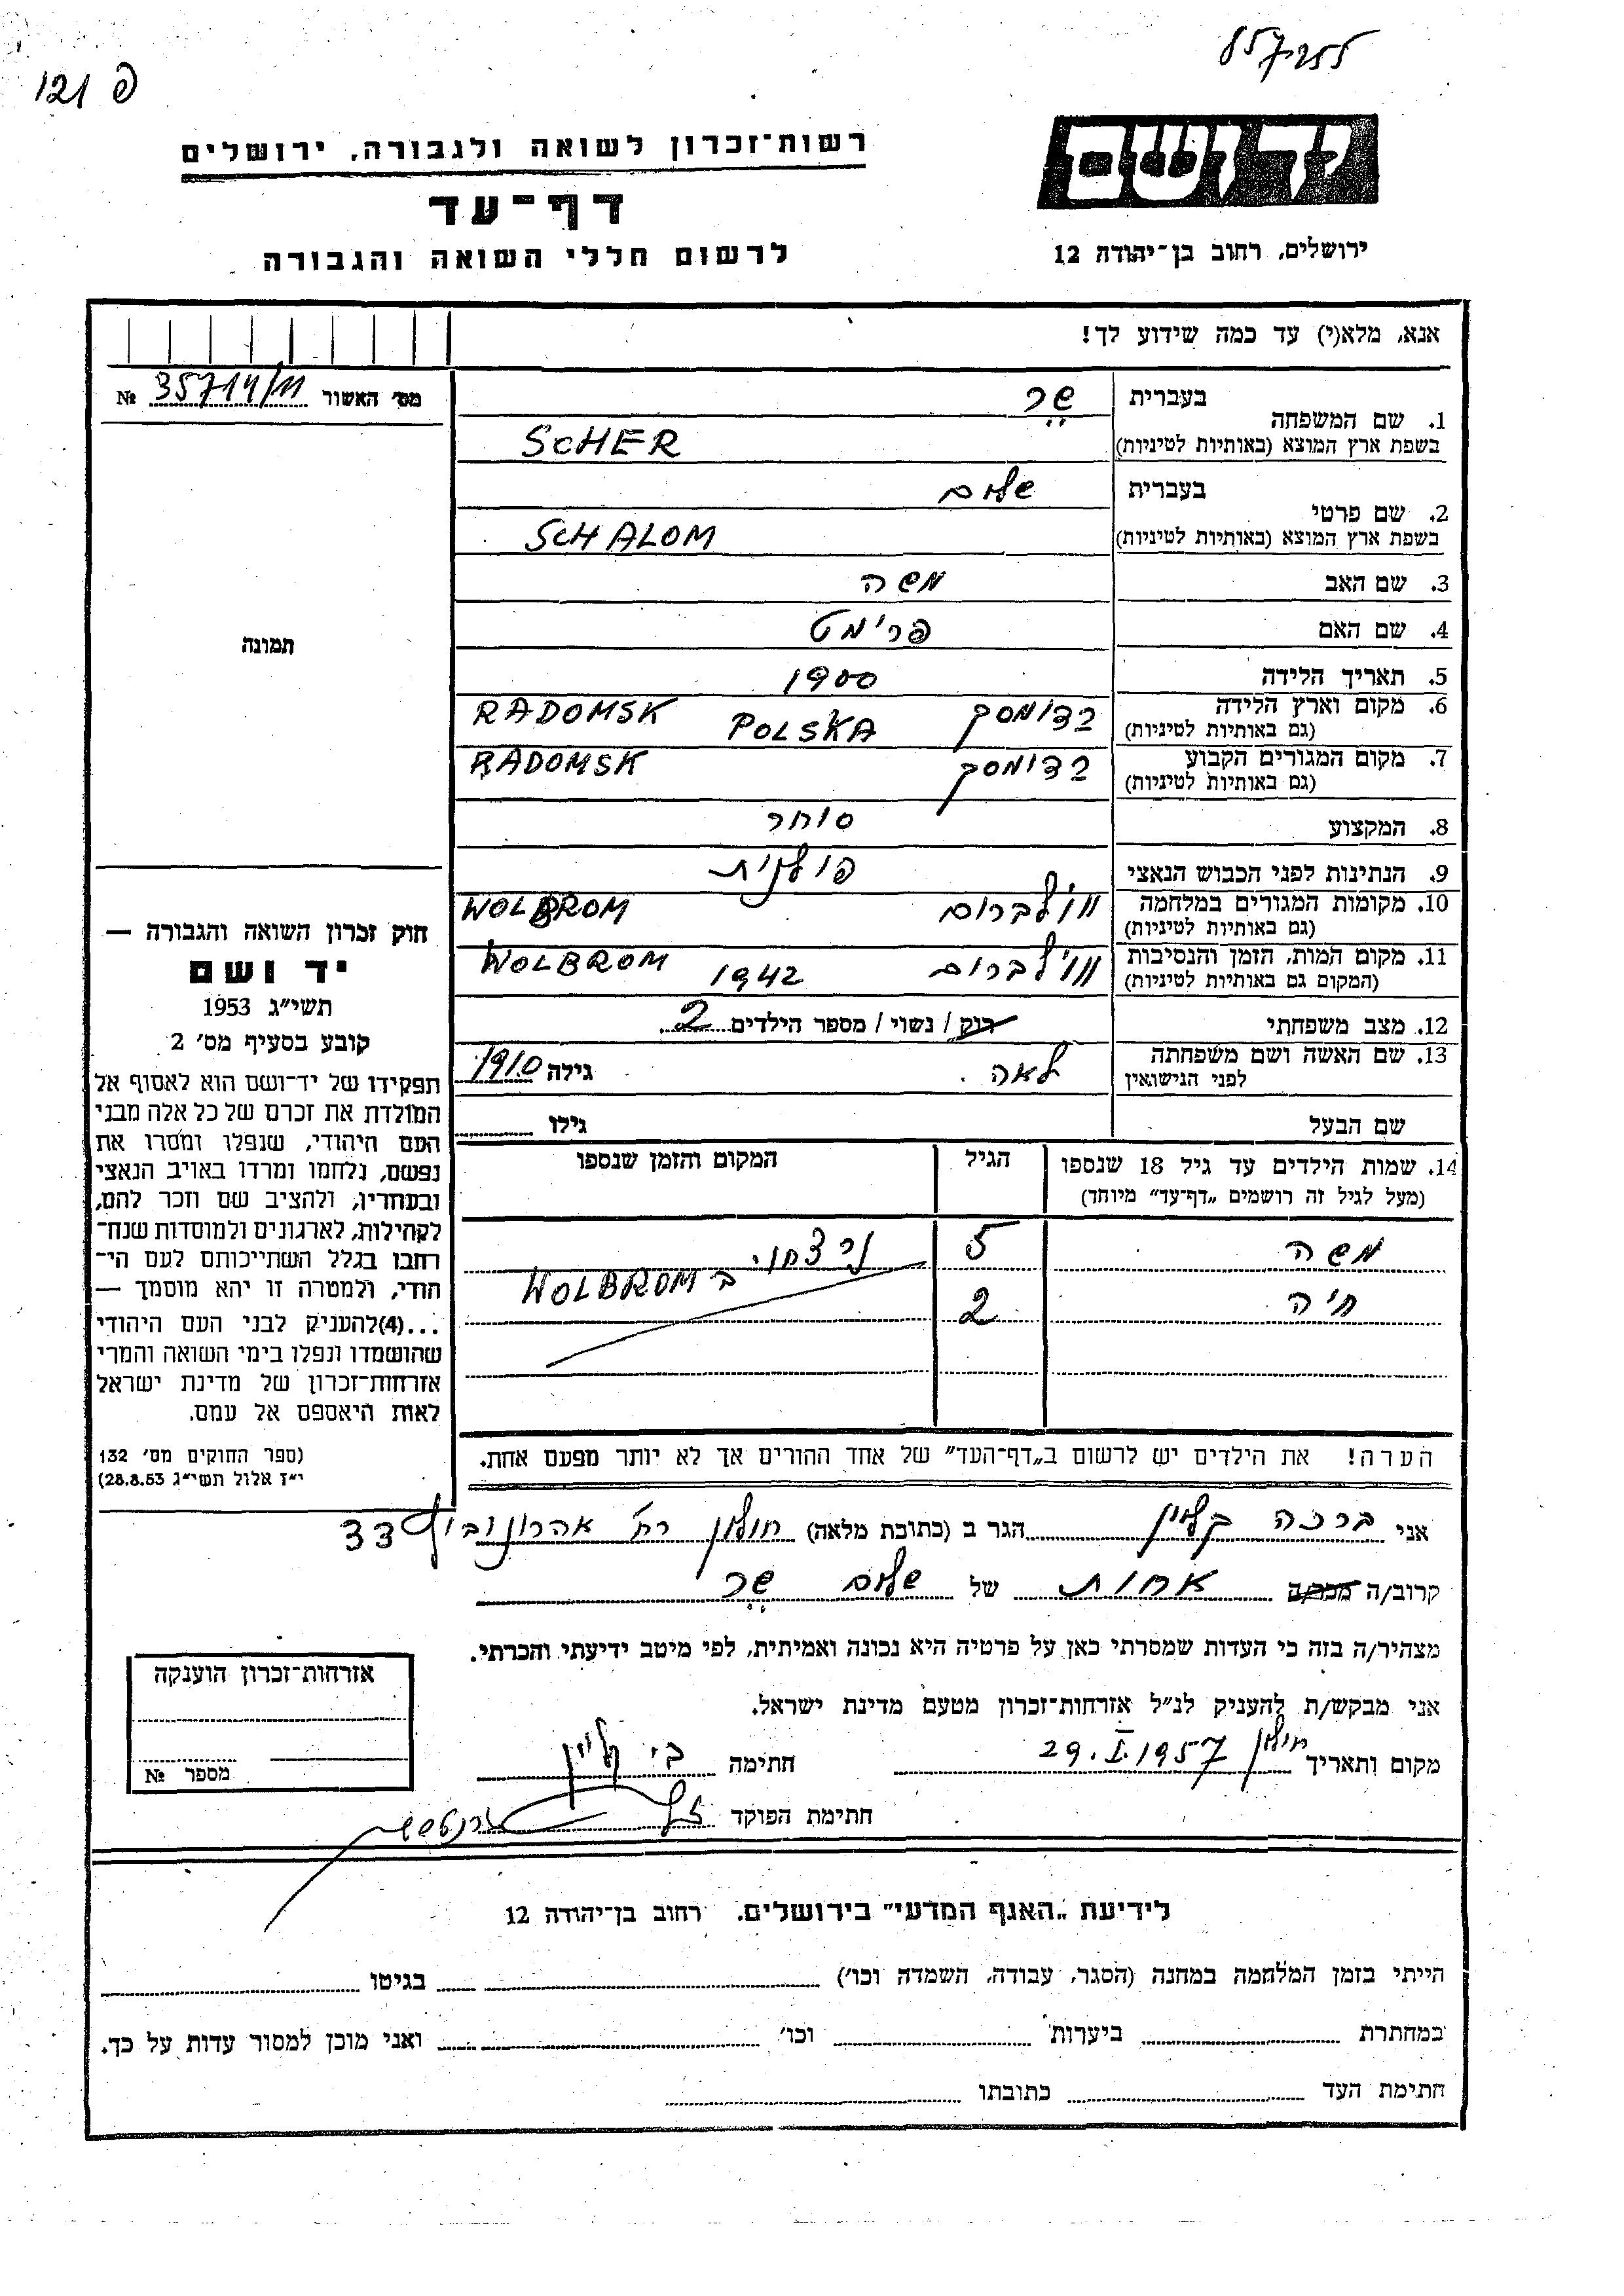 פ 121
יד ושם
רשות־זכרון לשואה ולגבורה, ירושלים
דף־עד
לרשום חללי השואה והגבורה
ירושלים, רחוב בן־יהודה 12
אנא, מלא(י) עד כמה שידוע לך!
מס׳ האשור 35714/11 №
1. שם המשפחה
בעברית שר
בשפת ארץ המוצא (באותיות לטיניות) SCHER
2. שם פרטי
בעברית שלום
בשפת ארץ המוצא (באותיות לטיניות) SCHALOM
3. שם האב משה
4. שם האם פרימט
5. תאריך הלידה 1900
6. מקום וארץ הלידה רדומסק POLSKA RADOMSK
(גם באותיות לטיניות)
7. מקום המגורים הקבוע רדומסק RADOMSK
(גם באותיות לטיניות)
8. המקצוע סוחר
9. הנתינות לפני הכבוש הנאצי פולנית
10. מקומות המגורים במלחמה וולברום WOLBROM
(גם באותיות לטיניות)
11. מקום המות, הזמן והנסיבות וולברום 1942 WOLBROM
(המקום גם באותיות לטיניות)
12. מצב משפחתי רוק / נשוי / מספר הילדים 2
13. שם האשה ושם משפחתה לאה גילה 1910
לפני הנישואין
שם הבעל גילו
14. שמות הילדים עד גיל 18 שנספו הגיל המקום והזמן שנספו
(מעל לגיל זה רושמים „דף־עד״ מיוחד)
משה 5 נרצחו
חיה 2 ב WOLBROM
הערה! את הילדים יש לרשום ב„דף־העד״ של אחד ההורים אך לא יותר מפעם אחת.
תמונה
חוק זכרון השואה והגבורה —
יד ושם
תשי״ג 1953
קובע בסעיף מס׳ 2
תפקידו של יד־ושם הוא לאסוף אל
המולדת את זכרם של כל אלה מבני
העם היהודי, שנפלו ומסרו את
נפשם, נלחמו ומרדו באויב הנאצי
ובעוזריו, ולהציב שם וזכר להם,
לקהילות, לארגונים ולמוסדות שנח־
רחבו בגלל השתייכותם לעם הי־
הודי, ולמטרה זו יהא מוסמך —
...(4) להעניק לבני העם היהודי
שהושמדו ונפלו בימי השואה והמרי
אזרחות־זכרון של מדינת ישראל
לאות היאספם אל עמם.
(ספר החוקים מס׳ 132
י״ז אלול תשי״ג 28.8.53)
אני ברכה קליין הגר ב (כתובת מלאה) חולון רח׳ אהרונוביץ 33
קרוב/ה מכר/ה אחות של שלום שר
מצהיר/ה בזה כי העדות שמסרתי כאן על פרטיה היא נכונה ואמיתית, לפי מיטב ידיעתי והכרתי.
אני מבקש/ת להעניק לנ״ל אזרחות־זכרון מטעם מדינת ישראל.
מקום ותאריך חולון 29.I.1957 חתימה ב׳ קליין
חתימת הפוקד
אזרחות־זכרון הוענקה
מספר №
לידיעת „האגף המדעי״ בירושלים. רחוב בן־יהודה 12
הייתי בזמן המלחמה במחנה (הסגר, עבודה, השמדה וכו׳) בגיטו
במחתרת ביערות וכו׳ ואני מוכן למסור עדות על כך.
חתימת העד כתובתו